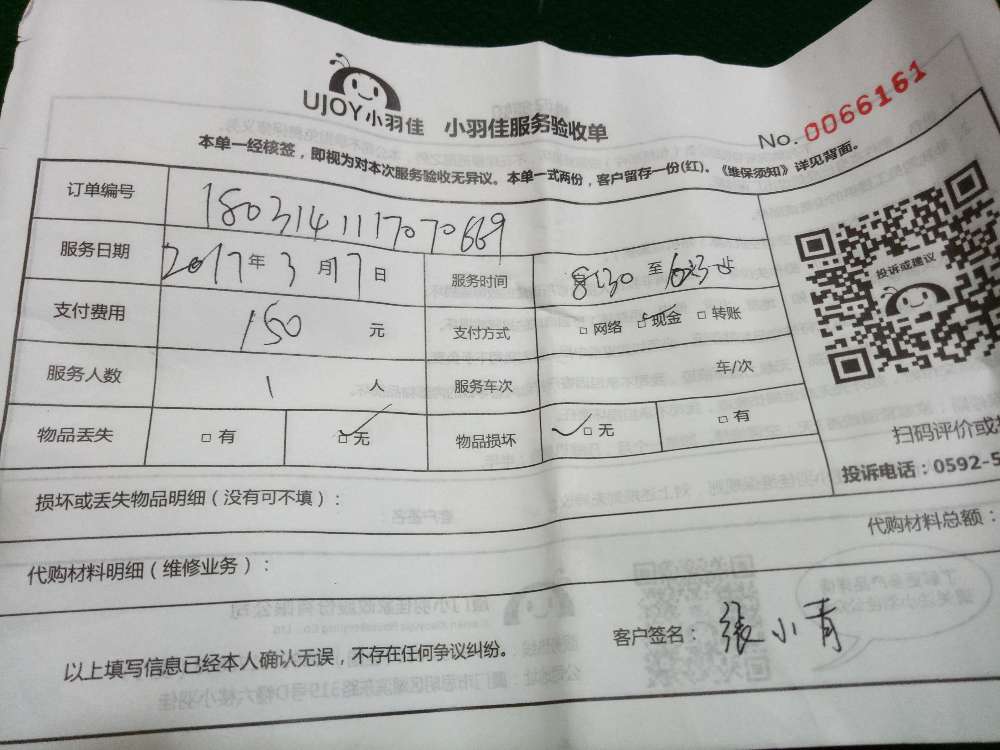 UJOY小羽佳 小羽佳服务验收单
No. 0066161
本单一经核签，即视为对本次服务验收无异议。本单一式两份，客户留存一份(红)。《维保须知》详见背面。
订单编号 1803141117070669
服务日期 2017年3月17日 服务时间 8:30 至
支付费用 150 元 支付方式 □ 网络 □ 现金 □ 转账
服务人数 1 人 服务车次 车/次
物品丢失 □ 有 □ 无 物品损坏 □ 无 □ 有
投诉或建议
扫码评价或
投诉电话：0592-5
损坏或丢失物品明细（没有可不填）：
代购材料明细（维修业务）： 代购材料总额：
以上填写信息已经本人确认无误，不存在任何争议纠纷。 客户签名：張小青